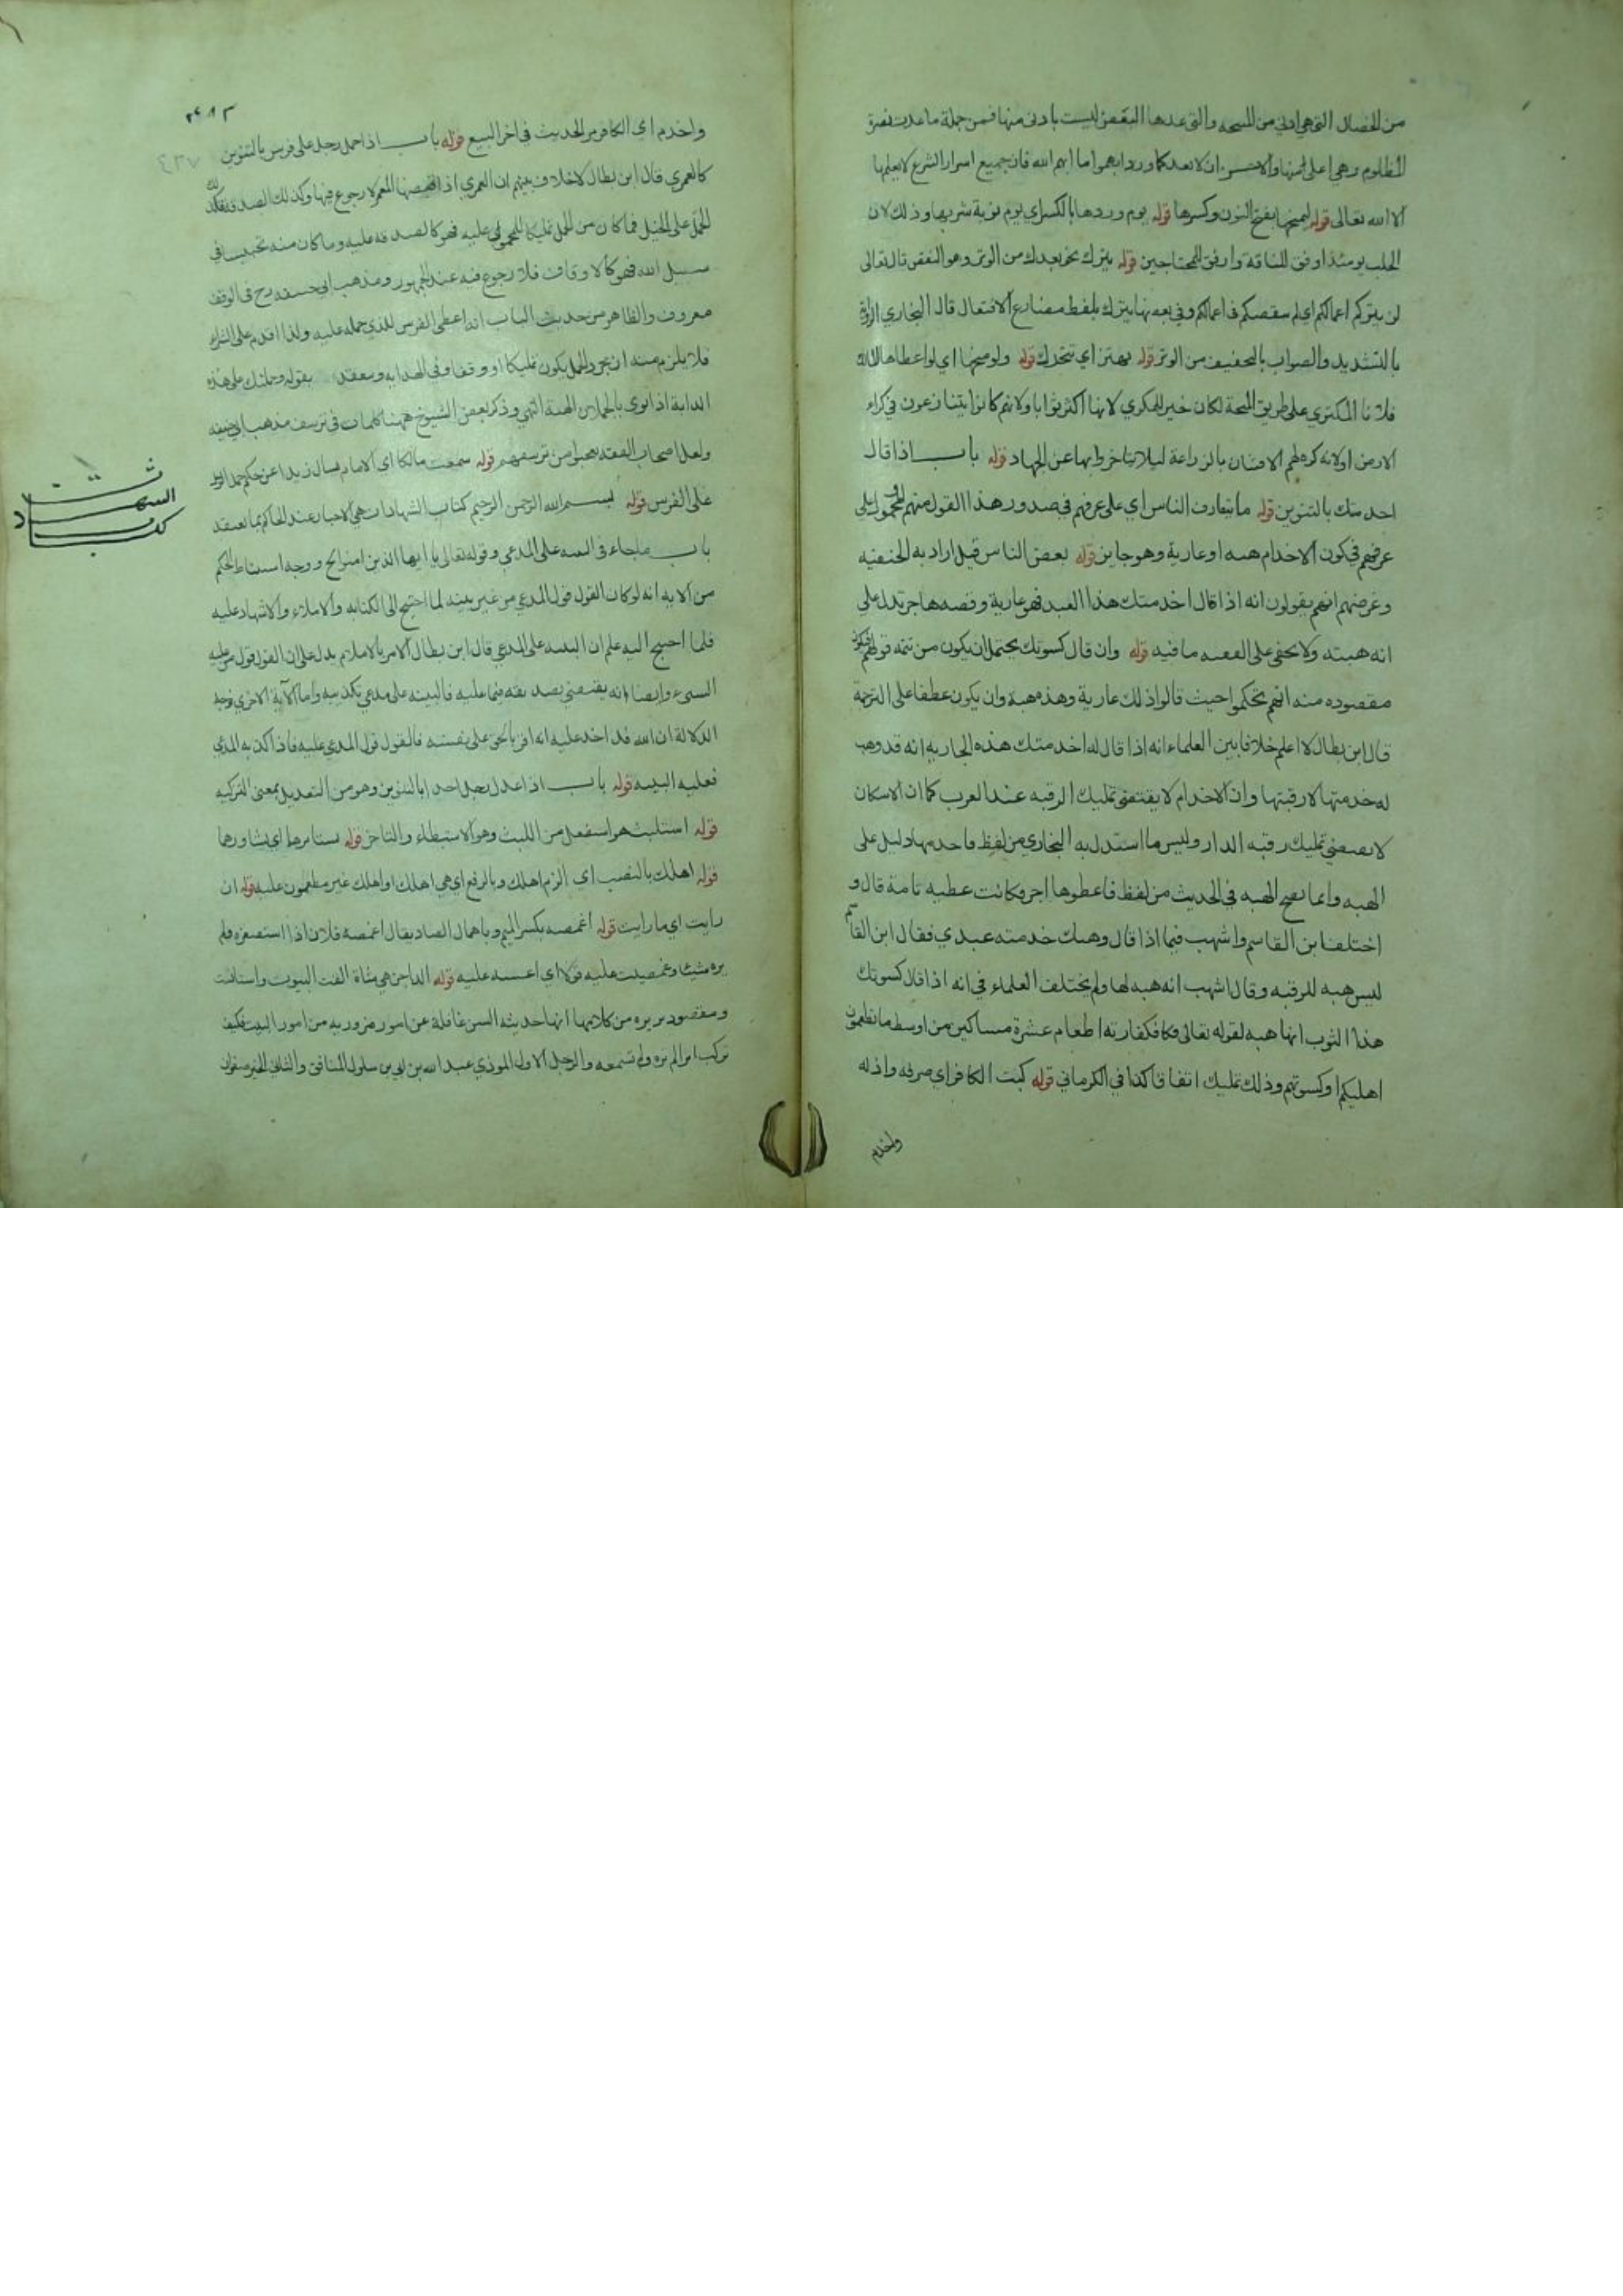 من الخصال التي هي ادنى من المنيحة والتي عدها البعض ليست بادنى منها فمن جملة ما عدت نصرة
المظلوم وهي اعلى منها والاحسن ان لا تعد كما ورد ابهموا ما ابهم الله فان جميع اسرار الشرع لا يعلمها
الا الله تعالى قوله ليمنحها بفتح النون وكسرها قوله يوم وردها بالكسر اي يوم نوبة شربها وذلك لان
الحلب يومئذ اوفق للناقة وارفق للمحتاجين قوله يترك نحو يعدك من الوتر وهو النقص قال تعالى
لن يتركم اعمالكم اي لم ينقصكم في اعمالكم وفي بعضها يترك بلفظ مضارع الافتعال قال البخاري الرواية
بالتشديد والصواب بالتخفيف من الوتر قوله يهتز اي تتحرك قوله ولو منحها اي لو اعطاها المالك
فلانا المكتري على طريق المنحة لكان خيرا للمكري لانها اكثر ثوابا ولانهم كانوا يتنازعون في كراء
الارض او لانه كره لهم الافتتان بالزراعة ليلا يتاخروا بها عن الجهاد قوله باب اذا قال
اخدمتك بالتنوين قوله ما يتعارف الناس اي على عرفهم في صدور هذا القول منهم محمول على
عرفهم في كون الاخدام هبة او عارية وهو جايز قوله بعض الناس قيل اراد به الحنفيه
وغرضهم انهم يقولون انه اذا قال اخدمتك هذا العبد فهو عارية وقصه هاجر تدل على
انه هبته ولا يخفى على الفقيه ما فيه قوله وان قال كسوتك يحتمل ان يكون من تتمه قولهم فيكون
مقصوده منه انهم تحكموا حيث قالوا ذلك عارية وهذه هبة وان يكون عطفا على الترجمة
قال ابن بطال لا اعلم خلافا بين العلماء انه اذا قال له اخدمتك هذه الجاريه انه قد وهب
له خدمتها لا رقبتها وان الاخدام لا يقتضى تمليك الرقبه عند العرب كما ان الاسكان
لا يقتضي تمليك رقبه الدار وليس ما استدل به البخاري من لفظ فاخدمها دليل على
الهبه وانما تصح الهبه في الحديث من لفظ فاعطوها اجر فكانت عطيه تامة قال و
اختلف ابن القاسم واشهب فيما اذا قال وهبتك خدمته عبدي فقال ابن القاسم
ليس هبه للرقبه وقال اشهب انه هبه لها ولم يختلف العلماء في انه اذا قال كسوتك
هذا الثوب انها هبه لقوله تعالى فكفارته اطعام عشرة مساكين من اوسط ما تطعمون
اهليكم او كسوتهم وذلك تمليك اتفاقا كذا في الكرماني قوله كبت الكافر اي صرفه واذله
واخدم
واخدم اي الكافر مر الحديث في اخر البيع قوله باب اذا حمل رجل على فرس بالتنوين
كالعمري قال ابن بطال لا خلاف بينهم ان العمري اذا قبضها المعمر لا رجوع فيها وكذلك الصدقه فكذلك
الحمل على الخيل فما كان من الحمل تمليكا للمحمول عليه فهو كالصدقه عليه وما كان منه تحبيسا في
سبيل الله فهو كالاوقاف فلا رجوع فيه عند الجمهور ومذهب ابي حنيفه رح في الوقف
معروف والظاهر من حديث الباب انه اعطى الفرس للذي حمله عليه ولذا اقدم على الشراء
فلا يلزم منه ان مجرد الحمل يكون تمليكا او وقفا وفي الهدايه وينعقد بقوله وحملتك على هذه
الدابة اذا نوى بالحملان الهبة انتهى وذكر بعض الشيوخ ههنا كلمات في تزييف مذهب ابي حنيفه
ولعل اصحاب الفقه من قوله سمعت مالكا اي الامام يسال زيدا عن حكم حمل الرجل
على الفرس قوله بسم الله الرحمن الرحيم كتاب الشهادات هي الاخبار عند الحاكم بما يعتقد
باب ما جاء في البينه على المدعي وقوله تعالى يا ايها الذين امنوا الخ ووجه استنباط الحكم
من الايه انه لو كان القول قول المدعي من غير بينه لما احتيج الى الكتابه والاملاء والاشهاد عليه
فلما احتيج اليه علم ان البينه على المدعي قال ابن بطال الامر بالاملاء يدل على ان القول قول من عليه
الشيء وايضا انه يقتضي تصديقه فيما عليه فالبينه على مدعي تكذيبه واما الآية الاخرى فوجه
الدلالة ان الله قد اخذ عليه انه اقر بالحق على نفسه فالقول قول المدعي عليه فاذا كذبه المدعي
فعليه البينه قوله باب اذا عدل رجل احدا بالتنوين وهو من التعديل بمعنى التزكيه
قوله استلبث هو استفعل من اللبث وهو الاستبطاء والتاخر قوله يستامرها اي يشاورهما
قوله اهلك بالنصب اي الزم اهلك وبالرفع اي هي اهلك او اهلك غير مطعون عليه قوله ان
رايت اي ما رايت قوله اغمصه بكسر الميم وباهمال الصاد يقال اغمصه فلان اذا استصغره ولم
يره شيئا وغمصت عليه قولا اي اعبته عليه قوله الداجن هي شاة الفت البيوت واستانست
ومقصود بريره من كلامها انها حديثه السن غافلة عن امور ضروريه من امور البيت فكيف
تركب امرا لم تره ولم تسمعه والرجل الاول الموذي عبد الله بن ابي بن سلول المنافق والثاني الخير صفوان
كتاب الشهادات